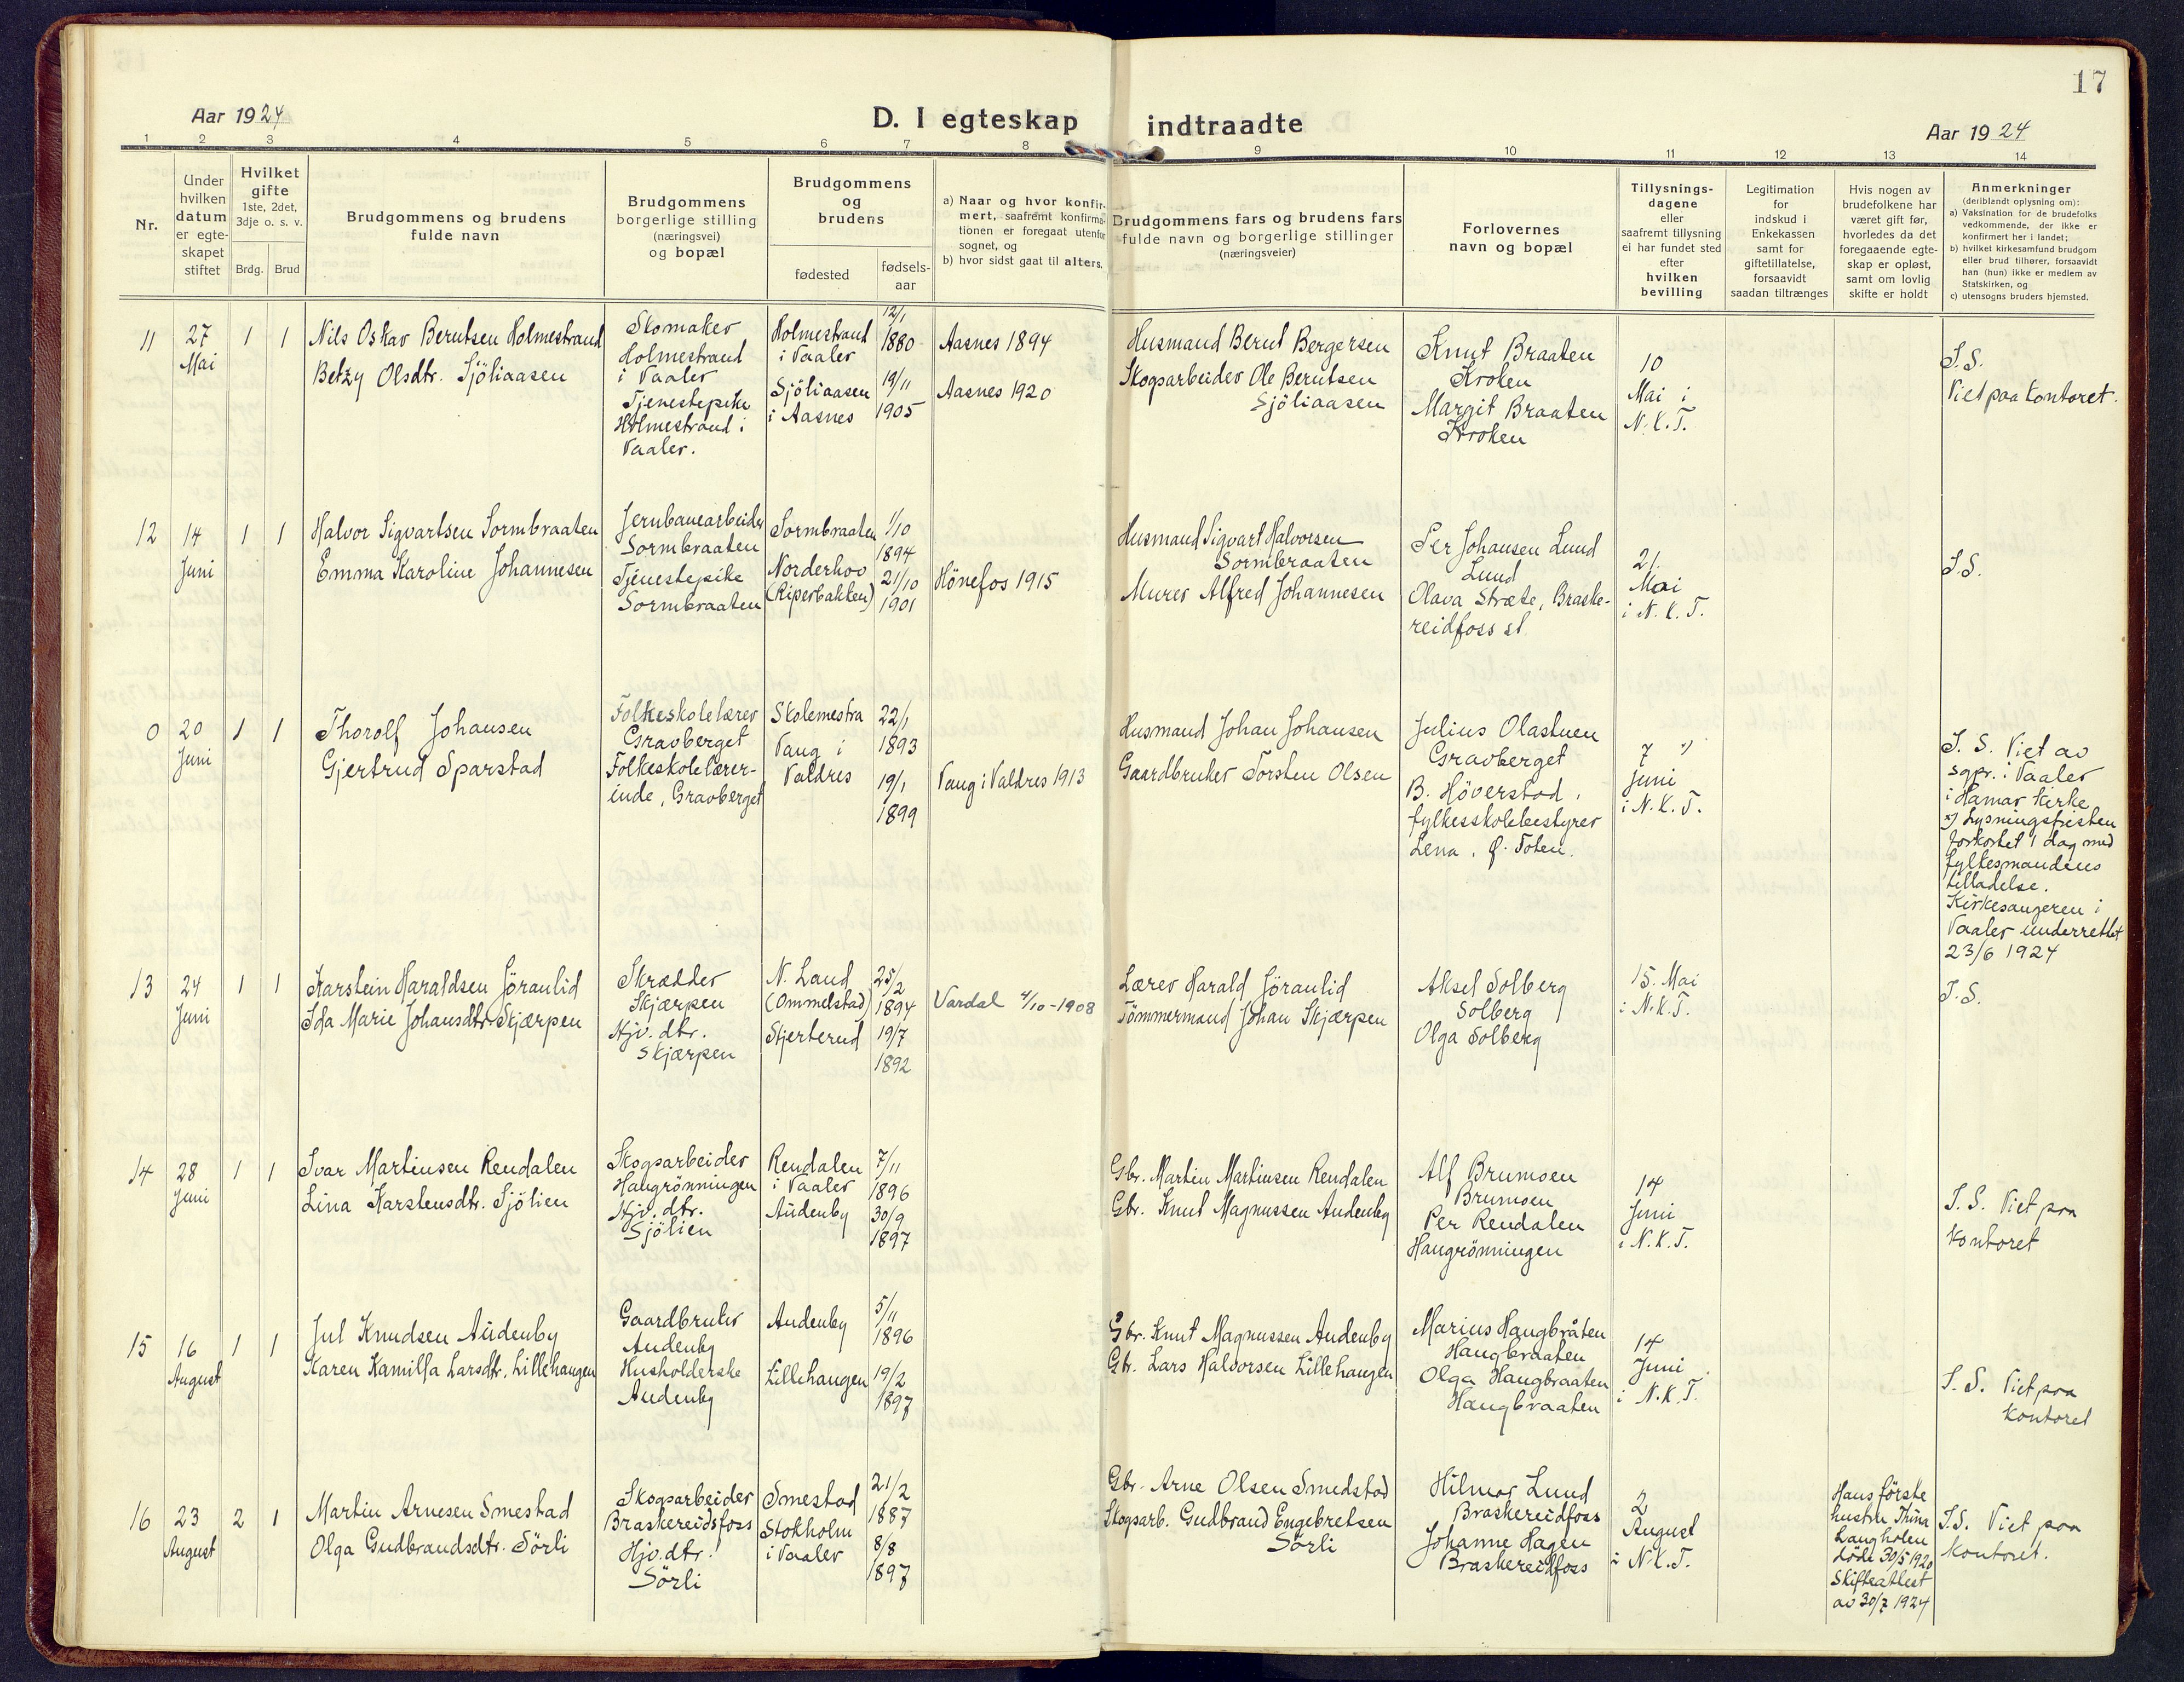 17
Aar 1924
D. I egteskap indtraadte
Aar 1924
1 2 3 4 5 6 7 8 9 10 11 12 13 14
Nr.
Under hvilken datum er egteskapet stiftet
Hvilket gifte 1ste, 2det, 3dje o. s. v.
Brdg. Brud
Brudgommens og brudens fulde navn
Brudgommens borgerlige stilling (næringsvei) og bopæl
Brudgommens og brudens
fødested
fødselsaar
a) Naar og hvor konfirmert, saafremt konfirmationen er foregaat utenfor sognet, og
b) hvor sidst gaat til alters.
Brudgommens fars og brudens fars fulde navn og borgerlige stillinger (næringsveier)
Forlovernes navn og bopæl
Tillysningsdagene eller saafremt tillysning ei har fundet sted efter hvilken bevilling
Legitimation for indskud i Enkekassen samt for giftetillatelse, forsaavidt saadan tiltrænges
Hvis nogen av brudefolkene har været gift før, hvorledes da det foregaaende egteskap er opløst, samt om lovlig skifte er holdt
Anmerkninger (deriblandt oplysning om):
a) Vaksination for de brudefolks vedkommende, der ikke er konfirmert her i landet;
b) hvilket kirkesamfund brudgom eller brud tilhører, forsaavidt han (hun) ikke er medlem av Statskirken, og
c) utensogns bruders hjemsted.
11
27 Mai
1 1
Nils Oskar Berntsen Holmestrand
Betzy Olsdtr. Sjöliaasen
Skomaker
Holmestrand
i Vaaler
Tjenestepike
Holmestrand i
Vaaler.
Holmestrand
i Vaaler
Sjöliaasen
i Aasnes
12/1
1880
19/11
1905
Aasnes 1894
Aasnes 1920
Husmand Bernt Bergersen
Skogsarbeider Ole Berntsen
Sjöliaasen
Knut Braaten
Kroken
Margit Braaten
Kroken
10
Mai i
N.K.T.
S.S.
Viet paa kontoret.
12
14 Juni
1 1
Halvor Sigvartsen Sormbraaten
Emma Karoline Johannesen
Jernbanearbeider
Sormbraaten
Tjenestepike
Sormbraaten
Sormbraaten
Norderhov
(Riperbakken)
1/10
1894
21/10
1901
Hönefos 1915
Husmand Sigvart Halvorsen
Sormbraaten
Murer Alfred Johannesen
Per Johansen Lund
Lund
Olava Stræte, Braske-
reidfoss st.
21.
Mai
i N.K.T.
S.S.
0
20 Juni
1 1
Thorolf Johansen
Gjertrud Sparstad
Folkeskolelærer
Gravberget
Folkeskolelærer-
inde, Gravberget
Skolemestra
Vang i
Valdres
22/1
1893
19/1
1899
Vang i Valdres 1913
Husmand Johan Johansen
Gaardbruker Torsten Olsen
Julius Olastuen
Gravberget
B. Höverstad,
fylkesskolebestyrer
Lena, Ø. Toten.
7 x)
Juni
i N.K.T.
S. S. Viet av
sgpr. i Vaaler
i Hamar kirke
x) Lysningsfristen
forkortet 1 dag med
fylkesmandens
tilladelse.
Kirkesangeren i
Vaaler underrettet
23/6 1924
13
24 Juni
1 1
Karstein Haraldsen Jöranlid
Ida Marie Johansdtr. Skjærpen
Skrædder
Skjærpen
Hjv. dtr.
Skjærpen
N. Land
(Ommelstad)
Stjerterud
25/2
1894
19/7
1892
Vardal 4/10-1908
Lærer Harald Jöranlid
Tömmermand Johan Skjærpen
Aksel Solberg
Solberg
Olga Solberg
15. Mai
i N.K.T.
S.S.
14
28 Juni
1 1
Ivar Martinsen Rendalen
Lina Karstensdtr. Sjölien
Skogsarbeider
Haugrönningen
Hjv. dtr.
Sjölien
Rendalen
i Vaaler
Audenby
7/11
1896
30/9
1897
Gbr. Martin Martinsen Rendalen
Gbr. Knut Magnussen Audenby
Alf Brumoen
Brumoen
Per Rendalen
Haugrönningen
14
Juni
i N.K.T.
S. S. Viet paa
kontoret
15
16 August
1 1
Jul Knudsen Audenby
Karen Kamilla Larsdtr. Lillehaugen
Gaardbruker
Audenby
Husholderske
Audenby
Audenby
Lillehaugen
5/11
1896
19/2
1897
Gbr. Knut Magnussen Audenby
Gbr. Lars Halvorsen Lillehaugen
Marius Haugbråten
Haugbraaten
Olga Haugbraaten
Haugbraaten
14
Juni
i N.K.T.
S. S. Viet paa
kontoret
16
23 August
2 1
Martin Arnesen Smestad
Olga Gudbrandsdtr. Sörli
Skogsarbeider
Braskereidsfoss
Hjv. dtr.
Sörli
Smestad
Stokholm
i Vaaler
21/2
1887
8/8
1897
Gbr. Arne Olsen Smedstad
Skogsarb. Gudbrand Engebretsen
Sörli
Hilmar Lund
Braskereidfoss
Johanne Hagen
Braskereidfoss
2
August
i N.K.T.
Hans förste
hustru Thina
Langholen
döde 30/5 1920
Skifteattest
av 30/7 1924
S.S. Viet paa
kontoret.